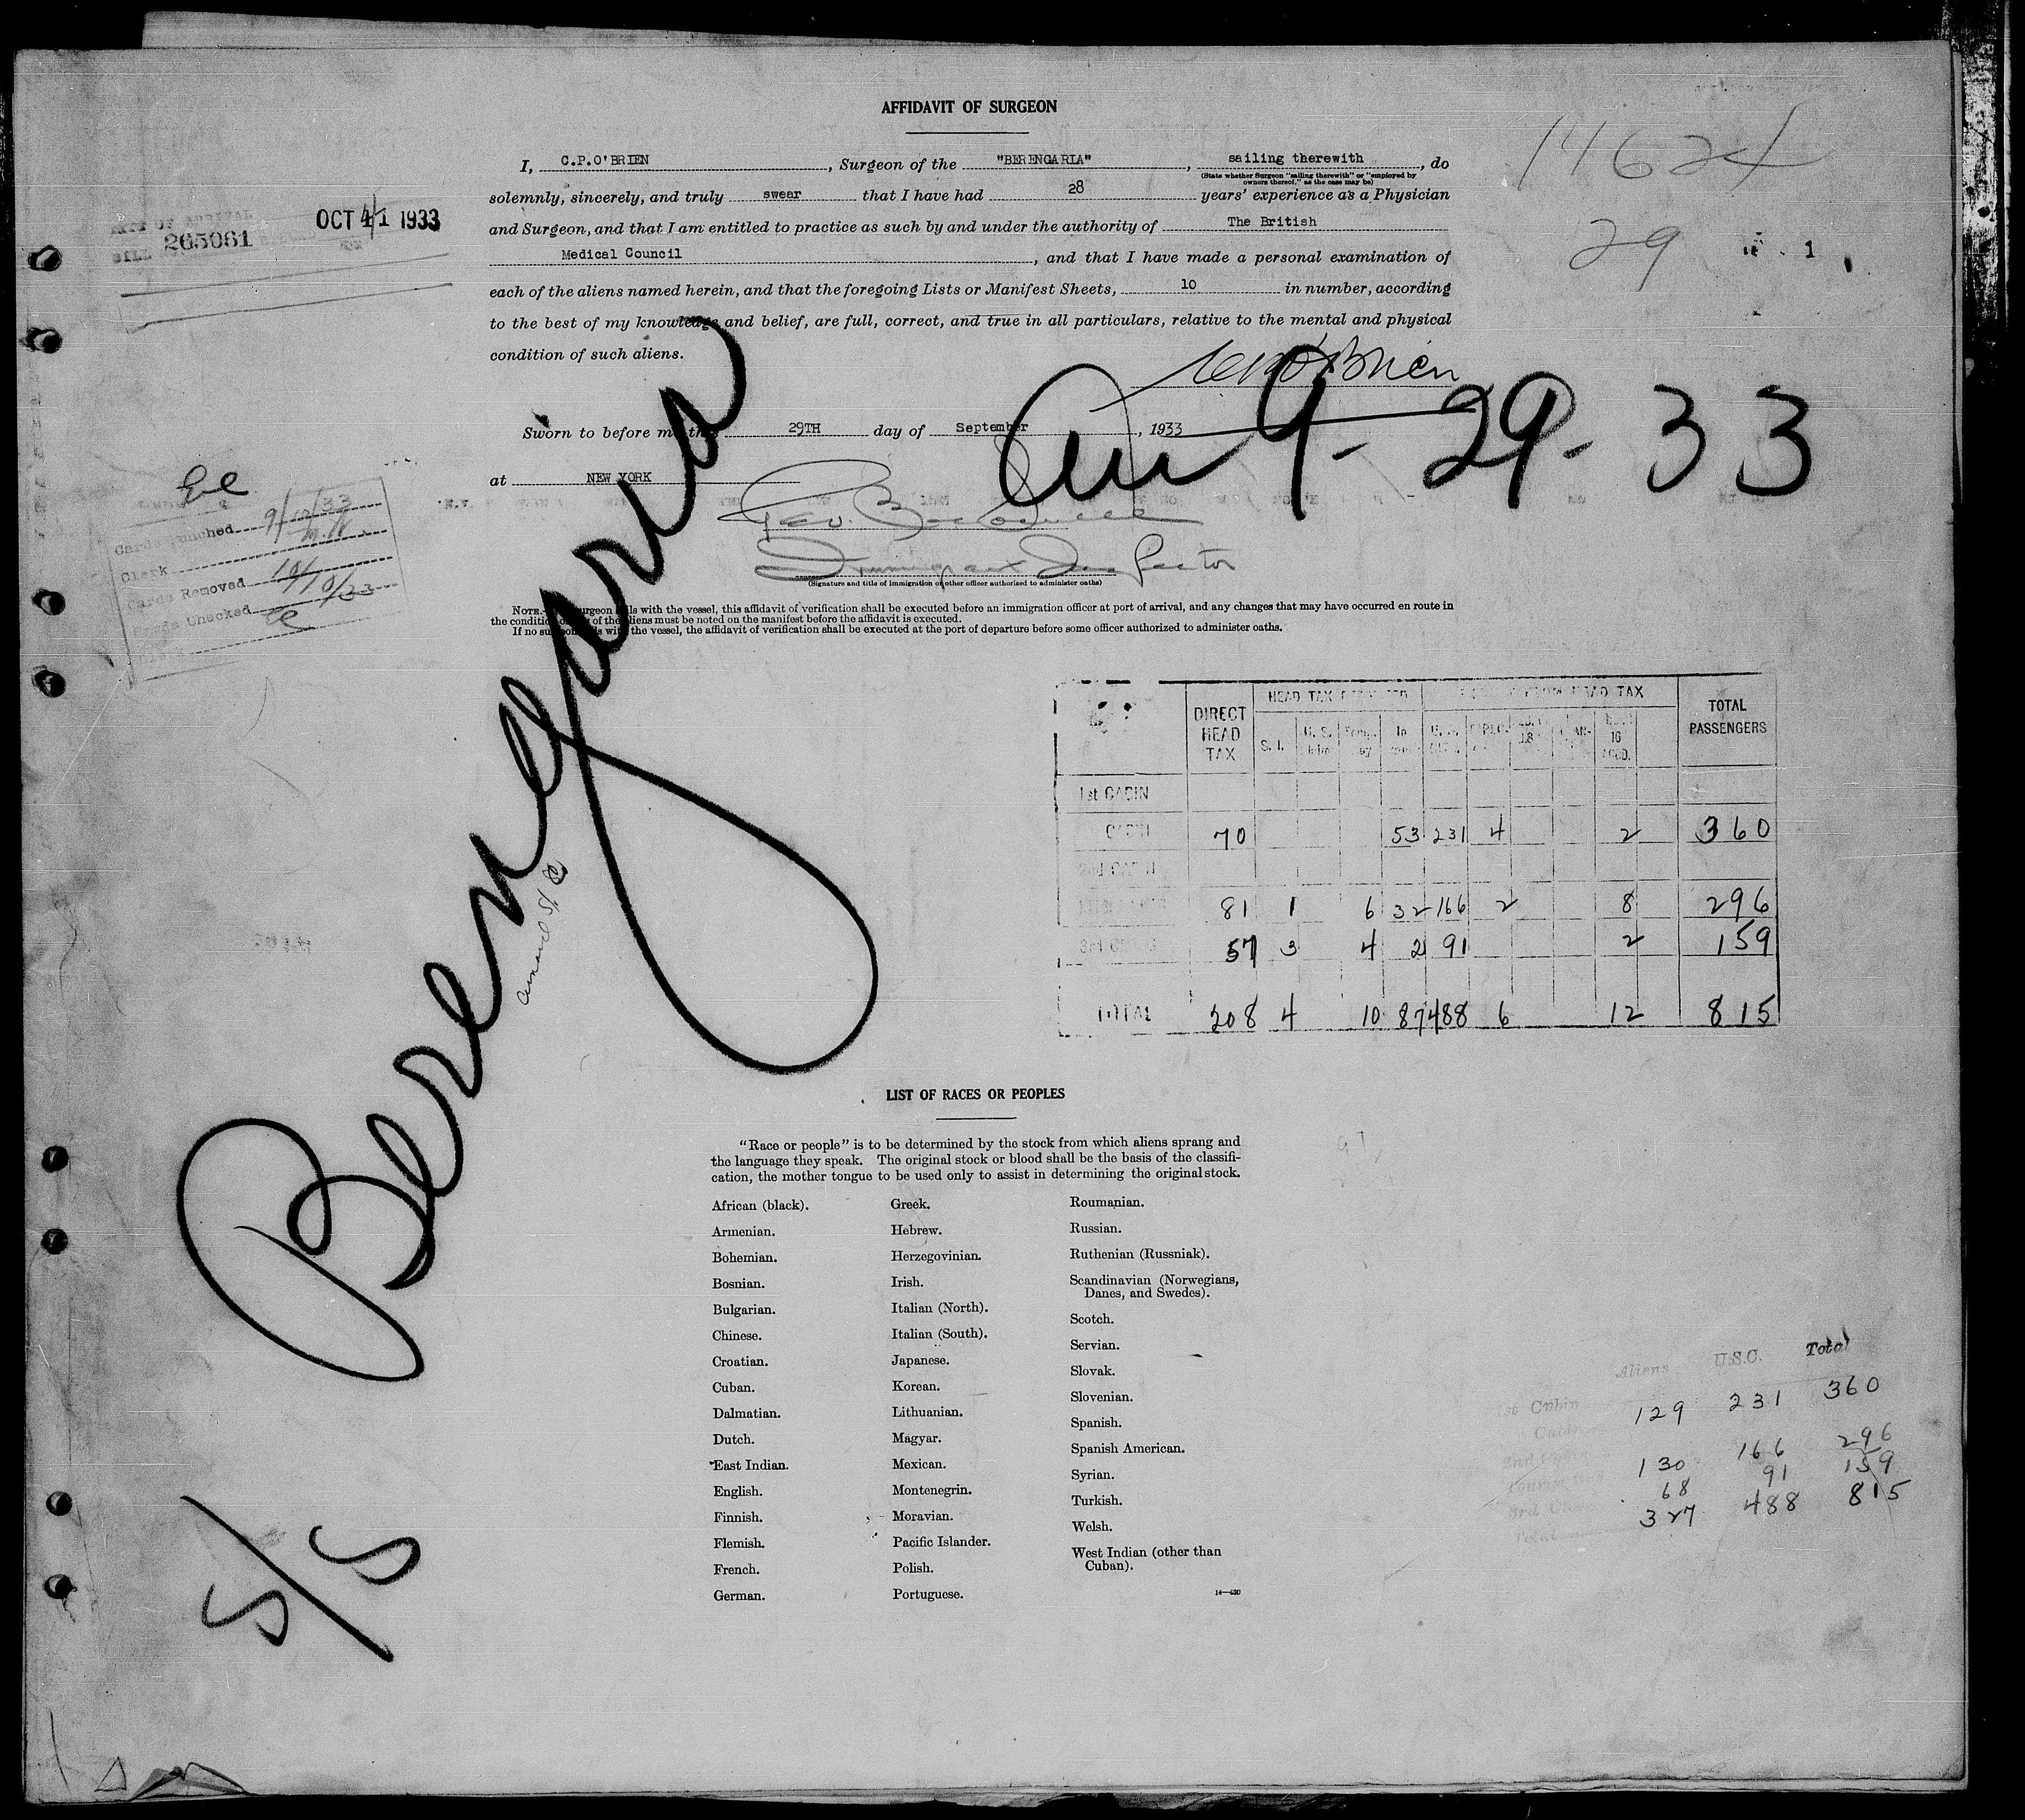 AFFIDAVIT OF SURGEON
I, C.P.O'BRIEN, Surgeon of the "BERENGARIA", sailing therewith, do
(State whether Surgeon "sailing therewith" or "employed by
owners thereof," as the case may be)
solemnly, sincerely, and truly swear that I have had 28 years' experience as a Physician
and Surgeon, and that I am entitled to practice as such by and under the authority of The British
Medical Council, and that I have made a personal examination of
each of the aliens named herein, and that the foregoing Lists or Manifest Sheets, 10 in number, according
to the best of my knowledge and belief, are full, correct, and true in all particulars, relative to the mental and physical
condition of such aliens.
14624
29
1
265061
OCT 4 1933
O'Brien
Sworn to before me this 29TH day of September, 1933
at NEW YORK
9-29-33
Immigrant Inspector
(Signature and title of immigration or other officer authorized to administer oaths)
Cards Punched 9/
Clerk
Cards Removed 10/10/33
Cards Checked
NOTE.—If surgeon sails with the vessel, this affidavit of verification shall be executed before an immigration officer at port of arrival, and any changes that may have occurred en route in
the condition of the aliens must be noted on the manifest before the affidavit is executed.
If no surgeon sails with the vessel, the affidavit of verification shall be executed at the port of departure before some officer authorized to administer oaths.
S/S Berengaria
DIRECT HEAD TAX HEAD TAX HEAD TAX TOTAL PASSENGERS
S. I. U. S. In 16
1st CABIN
CABIN 70 53 231 4 2 360
2nd CABIN
81 1 6 32 166 2 8 296
3rd 57 3 4 2 91 2 159
TOTAL 208 4 10 87 488 6 12 815
LIST OF RACES OR PEOPLES
"Race or people" is to be determined by the stock from which aliens sprang and
the language they speak. The original stock or blood shall be the basis of the classifi-
cation, the mother tongue to be used only to assist in determining the original stock.
African (black).
Armenian.
Bohemian.
Bosnian.
Bulgarian.
Chinese.
Croatian.
Cuban.
Dalmatian.
Dutch.
East Indian.
English.
Finnish.
Flemish.
French.
German.
Greek.
Hebrew.
Herzegovinian.
Irish.
Italian (North).
Italian (South).
Japanese.
Korean.
Lithuanian.
Magyar.
Mexican.
Montenegrin.
Moravian.
Pacific Islander.
Polish.
Portuguese.
Roumanian.
Russian.
Ruthenian (Russniak).
Scandinavian (Norwegians,
Danes, and Swedes).
Scotch.
Servian.
Slovak.
Slovenian.
Spanish.
Spanish American.
Syrian.
Turkish.
Welsh.
West Indian (other than
Cuban).
14—430
Aliens U.S.C. Total
1st Cabin 129 231 360
Cabin
2nd Cabin 130 166 296
68 91 159
Total 327 488 815